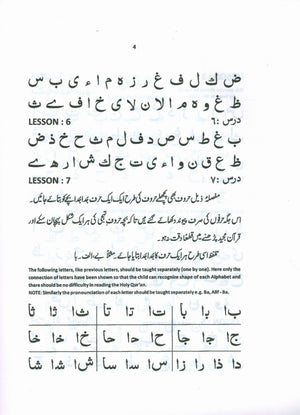 ض ك ل ف غ ر ز ه م ا ء ي ب س
ظ غ و ه م ا ل ا ن ل ا ي خ ا ف ے ث
LESSON : 6 درس :٦
ب غ ط س ص د ف ل م ش ح خ ذ ض
ظ ع ق ن و ا ء ي ت ج ك ش ا ر ه ے
LESSON : 7 درس :٧
ذیل حروف بھی پچھلے حروف کی طرح ایک ایک حرف جدا جدا بچے کو بتائے جائیں۔
اس جگہ حرفوں کی صرف پیوند دکھائے گئے ہیں تاکہ بچہ حروف تہجی کی ہر ایک شکل پہچان سکے اور
قرآن مجید پڑھنے میں قطعاً دقت نہ ہو۔
تلفظ اسی طرح ہر ایک حرف کا جدا جدا بتایا جائے۔ مثلاً بے، الف۔ با
The following letters, like previous letters, should be taught separately (one by one). Here only the
connection of letters have been shown so that the child can recognise shape of each Alphabet and
there should be no difficulty in reading the Holy Qur'an.
NOTE: Similarly the pronounciation of each letter should be taught separately e.g. Ba, Alif - Ba.
ب ا با ت ا تا ث ا ثا
ج ا جا ح ا حا خ ا خا
د ا ذ ا ر ا ز ا س ا سا ش ا شا